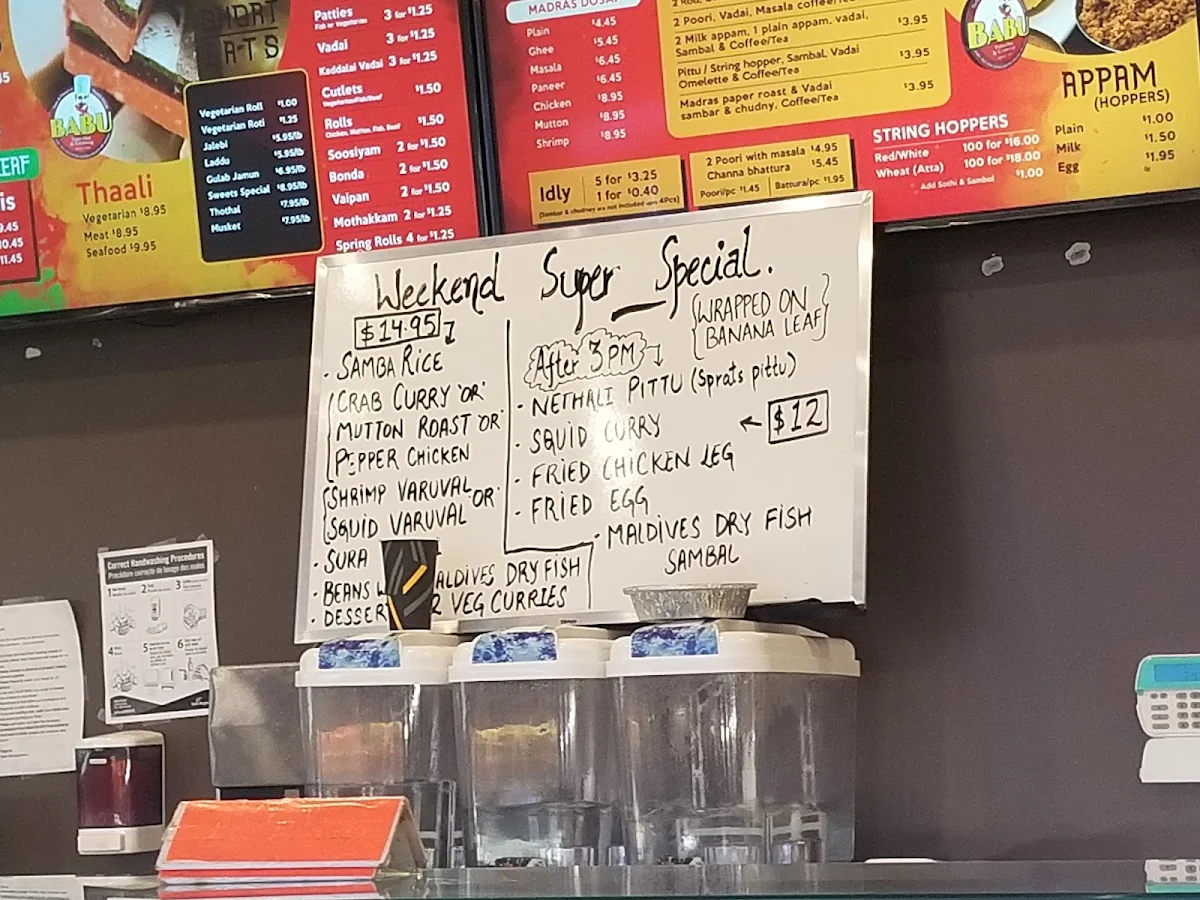 SHORT
EATS
BABU
Thaali
Vegetarian $8.95
Meat $8.95
Seafood $9.95
LEAF
9.45
10.45
11.45
Vegetarian Roll $1.00
Vegetarian Roti $1.25
Jalebi $5.95/lb
Laddu $5.95/lb
Gulab Jamun $6.95/lb
Sweets Special $8.95/lb
Thothal $7.95/lb
Musket $7.95/lb
Patties 3 for $1.25
Fish or Vegetarian
Vadai 3 for $1.25
Kaddalai Vadai 3 for $1.25
Cutlets $1.50
Vegetarian/Fish/Beef
Rolls $1.50
Chicken, Mutton, Fish, Beef
Soosiyam 2 for $1.50
Bonda 2 for $1.50
Vaipan 2 for $1.50
Mothakkam 2 for $1.25
Spring Rolls 4 for $1.25
MADRAS DOSAI
Plain $4.45
Ghee $5.45
Masala $6.45
Paneer $6.45
Chicken $8.95
Mutton $8.95
Shrimp $8.95
2 Poori, Vadai, Masala coffee/tea
2 Milk appam, 1 plain appam, vadai, $3.95
Sambal & Coffee/Tea
Pittu / String hopper, Sambal, Vadai $3.95
Omelette & Coffee/Tea
Madras paper roast & Vadai $3.95
sambar & chudny, Coffee/Tea
Idly 5 for $3.25
1 for $0.40
(Sambar & chudney are not included upto 4Pcs)
2 Poori with masala $4.95
Channa bhattura $5.45
Poori/pc $1.45 Battura/pc $1.95
BABU
STRING HOPPERS
Red/White 100 for $16.00
Wheat (Atta) 100 for $18.00
Add Sothi & Sambol $1.00
APPAM
(HOPPERS)
Plain $1.00
Milk $1.50
Egg $1.95
Weekend Super Special.
$14.95
· SAMBA RICE
CRAB CURRY 'OR'
MUTTON ROAST 'OR'
PEPPER CHICKEN
SHRIMP VARUVAL OR
SQUID VARUVAL
· SURA
· BEANS W ALDIVES DRY FISH
· DESSERT R VEG CURRIES
{WRAPPED ON
BANANA LEAF}
After 3PM
· NETHALI PITTU (Sprats pittu)
· SQUID CURRY ← $12
· FRIED CHICKEN LEG
· FRIED EGG
· MALDIVES DRY FISH
SAMBAL
Correct Handwashing Procedures
Procédure correcte de lavage des mains
1 2 3
4 5 6